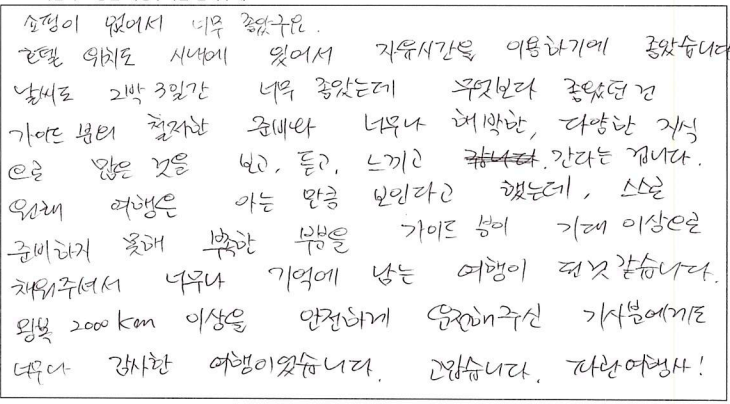 쇼핑이 없어서 너무 좋았구요.
호텔 위치도 시내에 있어서 자유시간을 이용하기에 좋았습니다
날씨도 2박 3일간 너무 좋았는데 무엇보다 좋았던 건
가이드 분의 철저한 준비와 너무나 해박한, 다양한 지식
으로 많은 것을 보고, 듣고, 느끼고 갑니다. 간다는 겁니다.
원래 여행은 아는 만큼 보인다고 했는데, 스스로
준비하지 못해 부족한 부분을 가이드 분이 기대 이상으로
채워주셔서 너무나 기억에 남는 여행이 된것 같습니다.
왕복 2000km 이상을 안전하게 운전해주신 기사분에게도
너무나 감사한 여행이었습니다. 고맙습니다. 파란여행사!